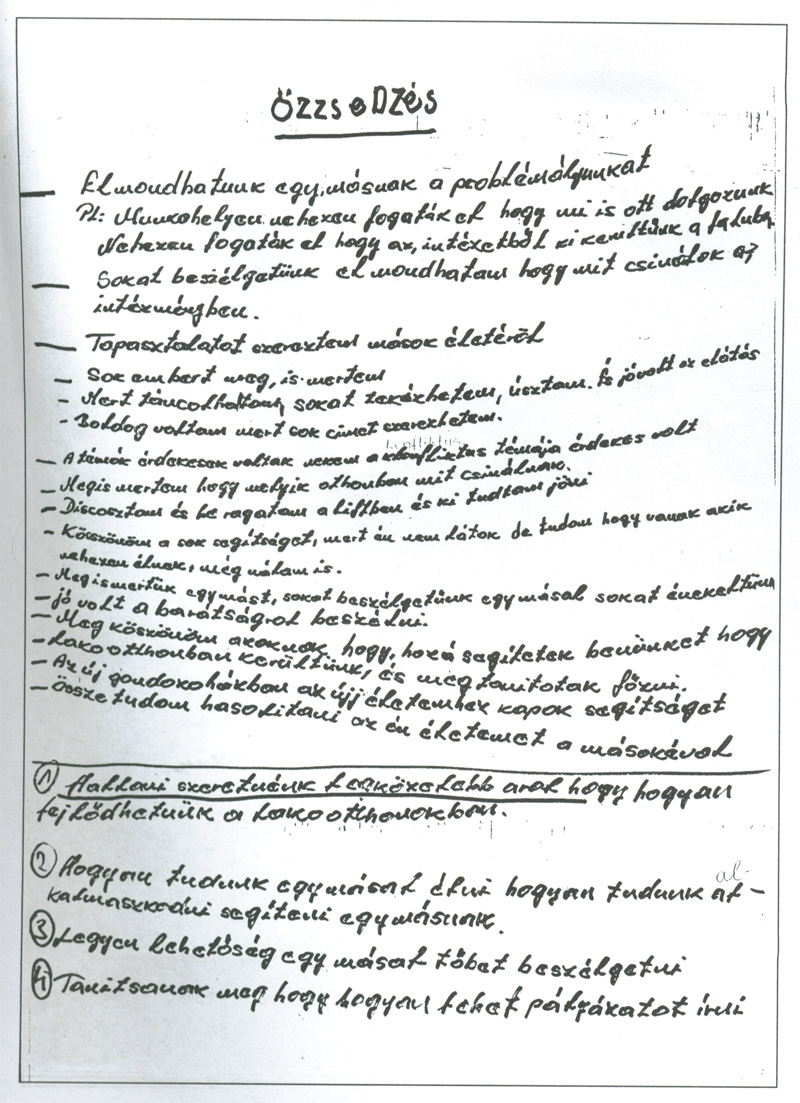 ŐZZSEDZÉS
— Elmondhatunk egy,másnak a problémályunkat
Pl: Munkohelyen nehezen fogaták el hogy mi is ott dolgozunk
Nehezen fogaták el hogy az, intézetből ki kerültünk a faluba
— Sokat beszélgetünk elmondhatam hogy mit csinálok az
intézményben.
— Topasztalatot szereztem mások életéről
— Sok embert meg, is mertem
- Mert táncolhattam, sokat tekézhetem, úsztam. És jóvolt az elátás
- Boldog voltam mert sok cimet szerezhetem.
— A témák érdekesek voltak nekem a konfliktus témája érdekes volt
— Megis mertem hogy melyik othonban mit csinálnak.
— Discosztam és be ragatam a liftben és ki tudtam jöni
- Köszönöm a sok segítséget, mert én nem látok de tudom hogy vanak akik
nehezen élnek, még nálam is.
— Megismertük egymást, sokat beszélgetünk egymásal sokat énekeltünk
— jó volt a barátságrol beszélni.
— Meg köszönöm azoknak hogy, hozá segítetek benünket hogy
- Lakootthonban kerültünk, és megtanitotak főzni.
- Az új gondozohákban az újj életemhez kapok segítséget
— össze tudom hasolitani az én életemet a másokával
① Hallani szeretnénk legközelebb arol hogy hogyan
fejlődhetünk a Lakootthonokban.
② Hogyan tudunk egymásal élni hogyan tudunk al-
kalmaszkodni segíteni egymásnak.
③ Legyen lehetőség egy másal többet beszélgetni
④ Tanitsanak meg hogy hogyan lehet pályázatot írni